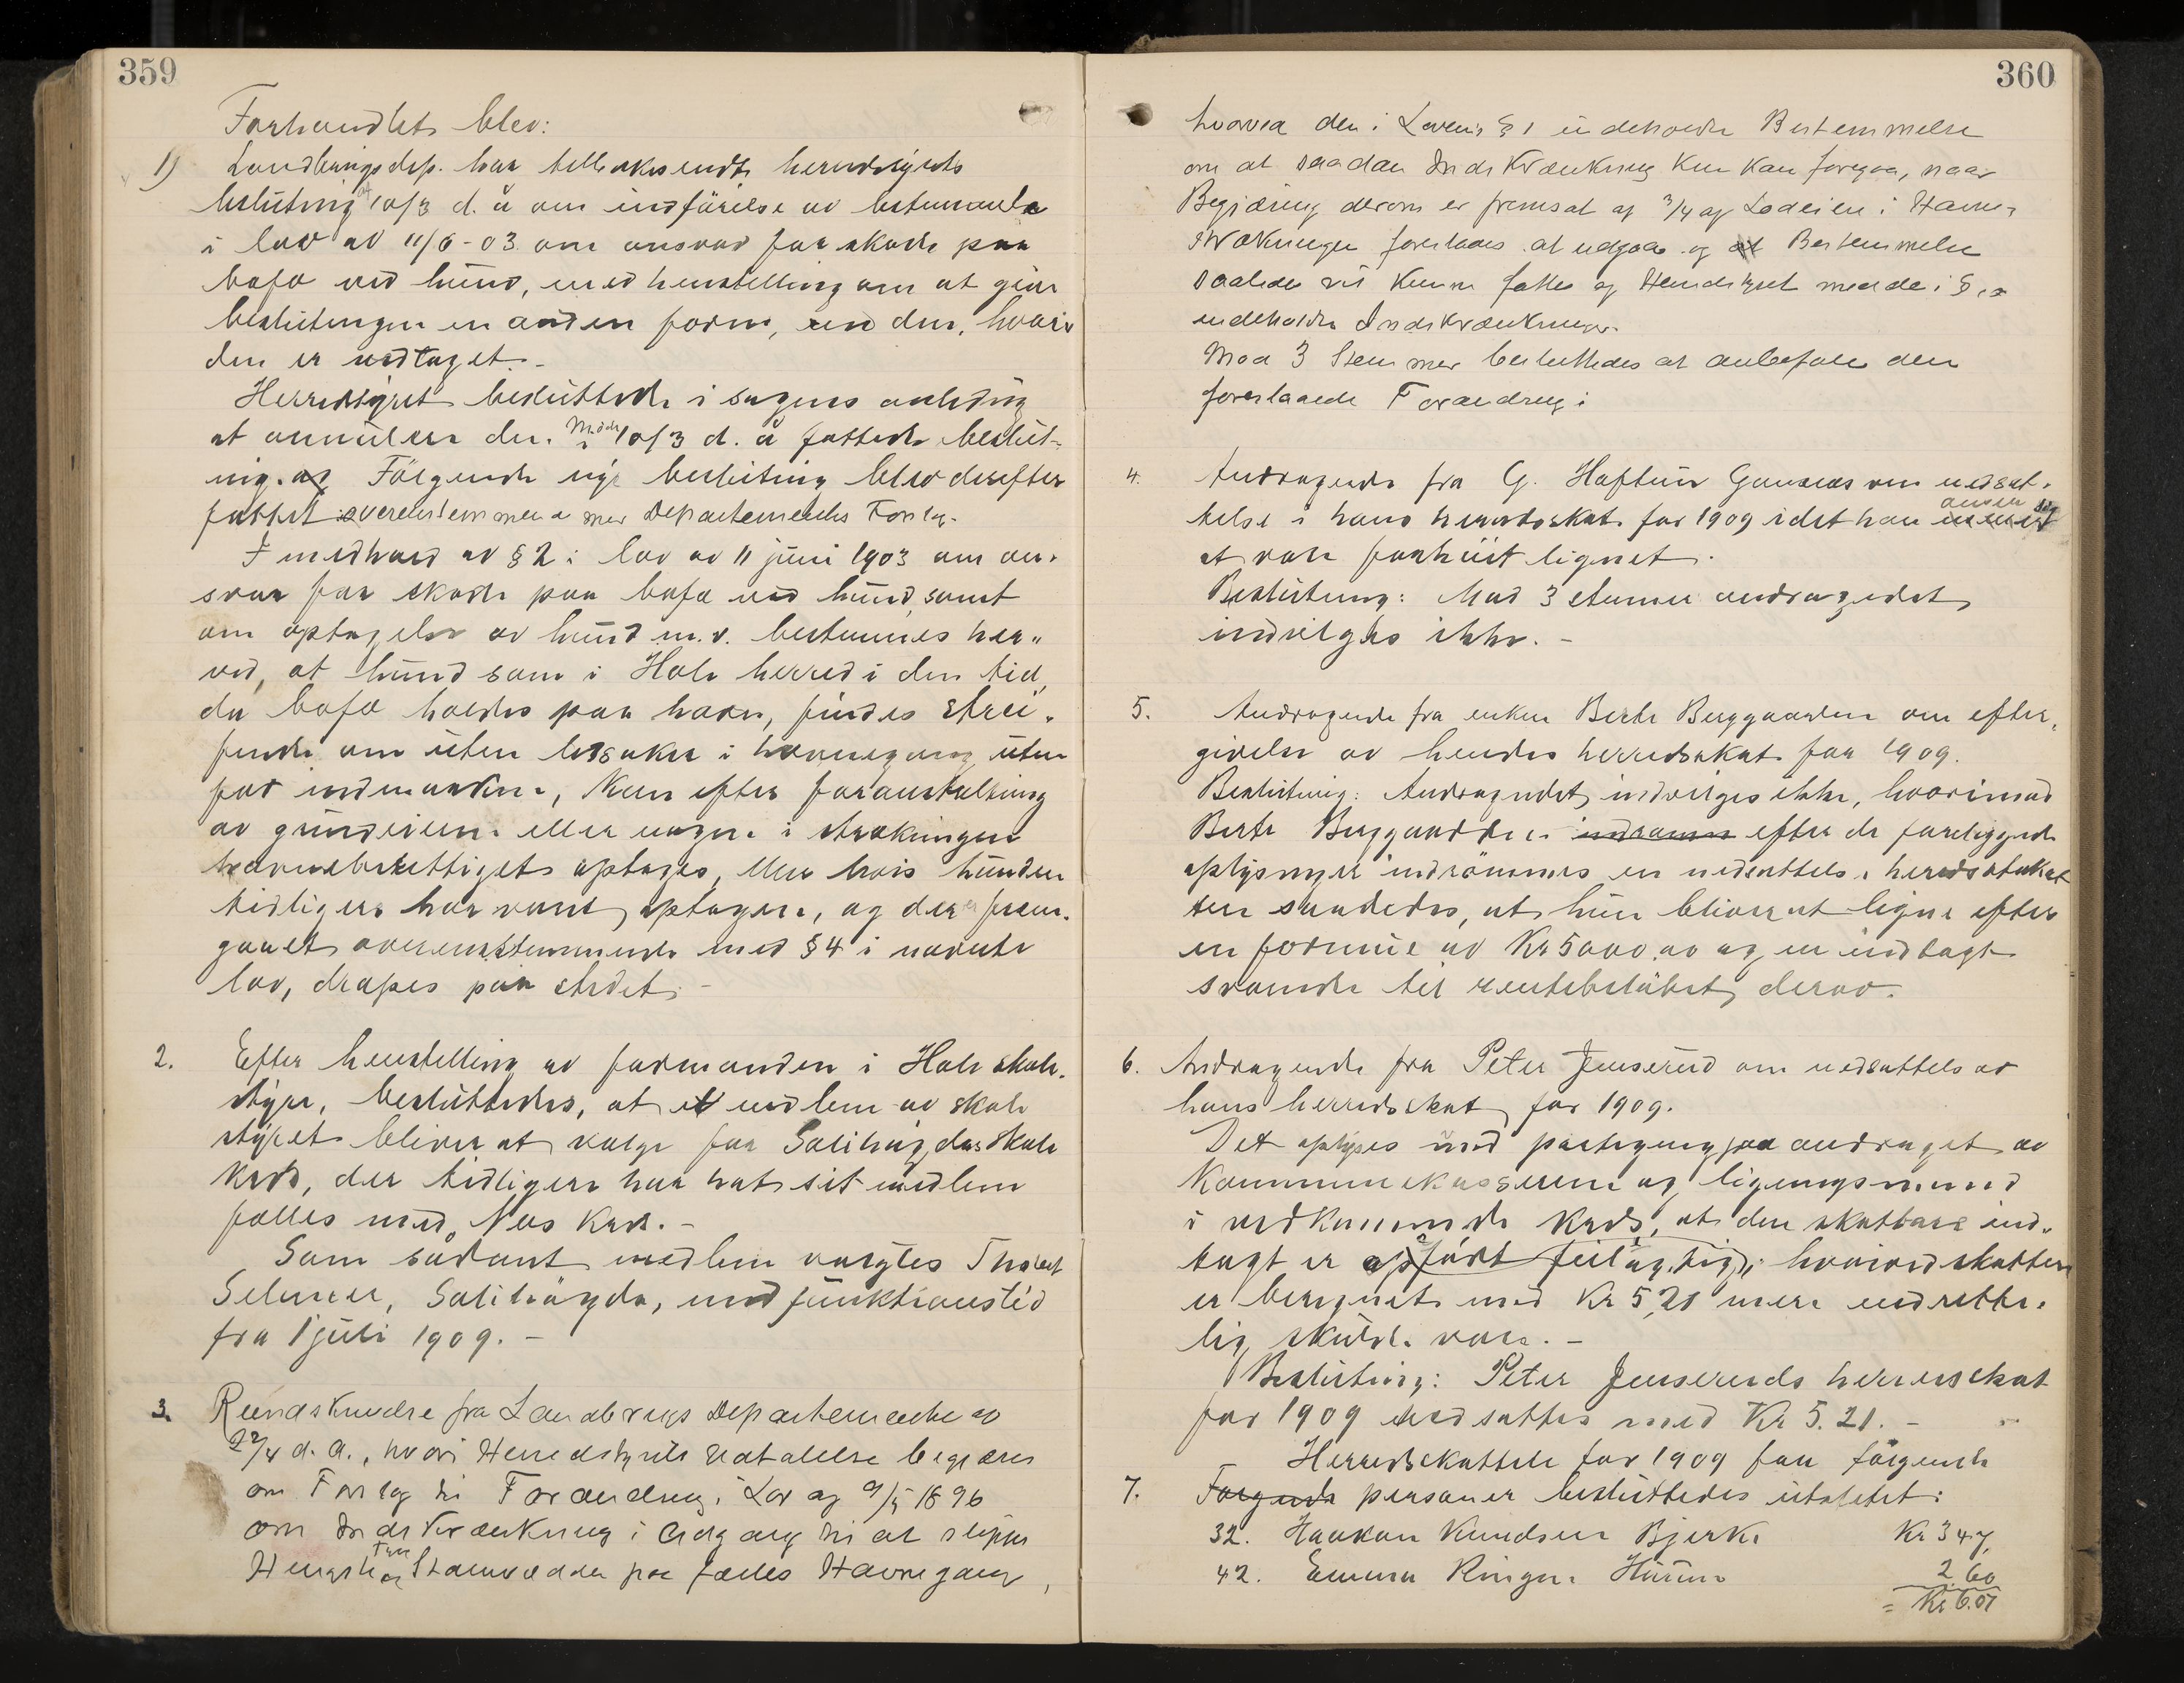 359
Forhandlet blev:
1) Landbrugsdep. har tilbakesendt herredstyrets
beslutning af 10/3 d. å om indførelse av bestemmelse
i lov av 11/6-03 om ansvar for skade paa
bufæ ved hund, med henstilling om at give
beslutningen en anden form, end den, hvori
den er vedtaget. -
Herredstyret besluttede i sagens anledning
at annulere den i Møde 10/3 d. å fattede beslut-
ning. og Følgende nye beslutning blev derefter
fattet i overenstemmelse med Departementets Forslag.
I medhold av § 2 i lov av 11 juni 1903 om an-
svar for skade paa bufæ ved hund, samt
om optagelse av hund m.v. bestemmes her-
ved, at hund som i Hole herred i den tid,
da bufæ holdes paa havn, findes strei-
fende om uten ledsaker i havnegang uten
for indmarken, kun efter foranstaltning
av grundeieren eller nogen i strøkningen
havneberettiget optages, Men hvis hunden
tidligere har været optagen, og der er frem-
gaaet overensstemmende med § 4 i nævnte
lov, dræpes paa stedet. -
2. Efter henstilling av formanden i Hole skole-
styre, besluttedes, at et medlem av skole
styret bliver at vælge for Solihøgdas skole
kreds, der tidligere har hat sit medlem
fælles med Nes Kreds. -
Som sådant medlem valgtes Thorbert
Selmer, Solihøgda, med funktionstid
fra 1 juli 1909. -
3. Rundskrivelse fra Landbrugs Departementet av
22/4 d. A., hvori Herredstyrets Udtalelse begjæres
om Forslag til Forandring i Lov af 9/5 1896
om Indskrænkning i Adgang til at slippe
Hingster og Tyre Stamvædder paa fælles Havnegang,
360
hvorved den i Lovens § 1 indeholdte Bestemmelse
om at saadan Indskrænkning kun kan foregaa, naar
Begjæring derom er fremsat af 3/4 af Lodeiere i Havne-
strækningen foreslaaes at udgaa og at Bestemmelse
saaledes vil kunne fattes af Herredstyret med de i §
indeholdte Indskrænkninger.
Mod 3 Stemmer besluttedes at anbefale den
foreslaaede Forandring:
4. Andragende fra G. Haftun Gomnes om nedsæt-
telse i hans herredsskat for 1909 idet han anser sig
at være forhøit lignet.
Beslutning: Mod 3 stemmer andragendet
indvilges ikke. -
5. Andragende fra enken Berte Berggaarden om efter-
givelse av hendes herredsskat for 1909.
Beslutning: Andragendet indvilges ikke, hvorimod
Berte Berggaarden indrømm efter de foreliggende
oplysninger indrømmes en nedsættelse i herredsskat
ten saaledes, at hun bliver at ligne efter
en formue av Kr 5000,00 og en indtægt
svarende til rentebeløbet derav.
6. Andragende fra Peter Jenserud om nedsættelse av
hans herredsskat for 1909.
Det oplyses ved paategning paa andraget av
Kommunekassereren og ligningsmænd
i vedkommende kreds, at den skatbare ind-
tægt er opført feilagtig, hvorved skatten
er beregnet med Kr 5,21 mere end rette-
lig skulde være. -
Beslutning: Peter Jenseruds herredsskat
for 1909 nedsættes med Kr 5.21. -
Herredsskattene for 1909 for følgende
7. Følgende personer besluttedes utslettet:
32. Haakon Knudsen Bjerke Kr 3 47,
42. Emma Ringne Hurum 2 60
= Kr 6.07